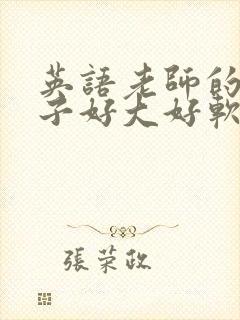 英語老師的
子好大好軟
張荣政